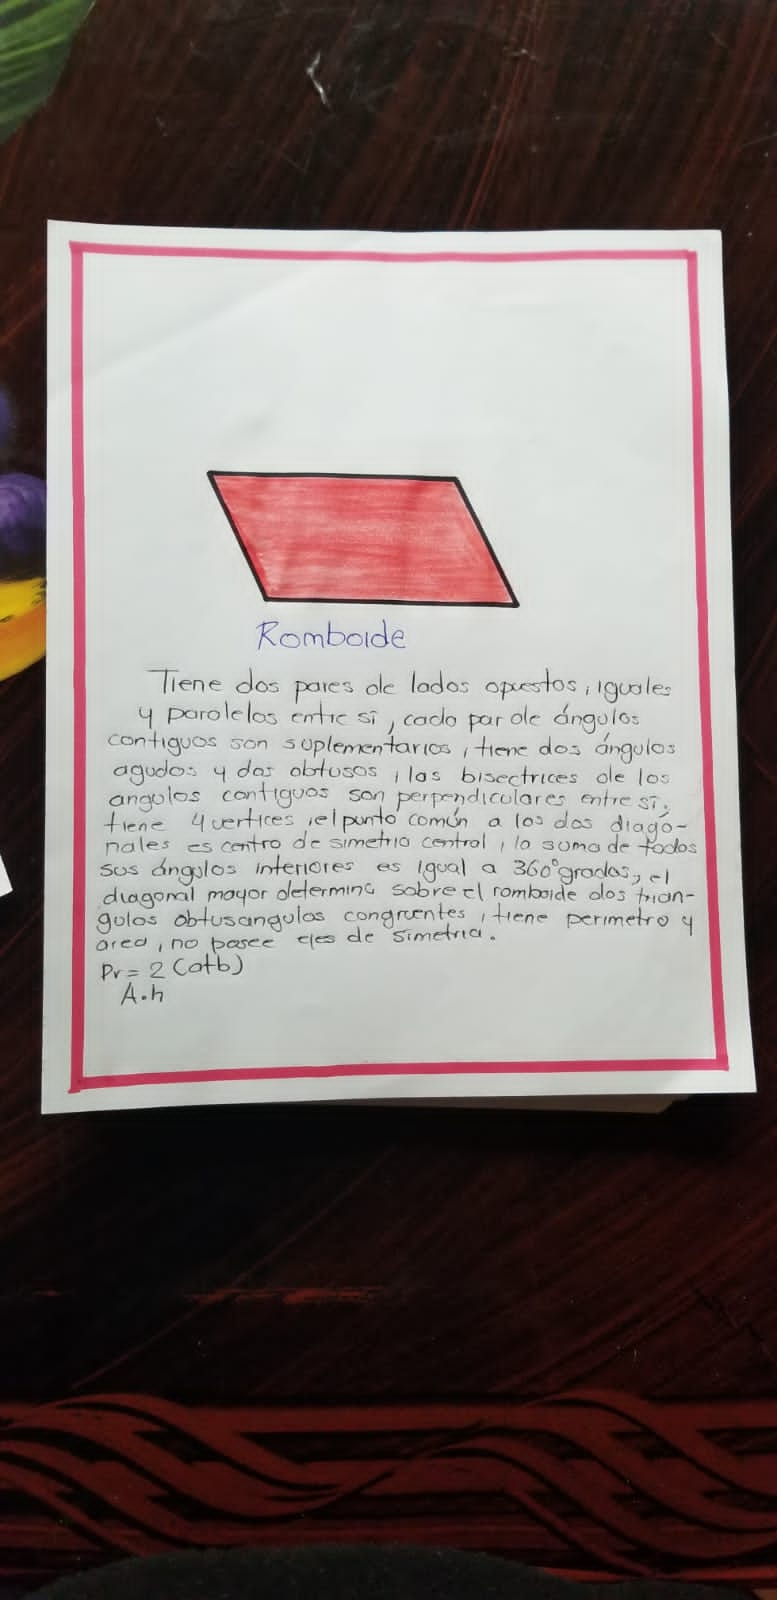 Romboide
Tiene dos pares de lados opuestos, iguales
y paralelos entre sí, cada par de ángulos
contiguos son suplementarios, tiene dos ángulos
agudos y dos obtusos, las bisectrices de los
angulos contiguos son perpendiculares entre sí.
tiene 4 vertices, el punto común a los dos diagó-
nales es centro de simetria central, la suma de todos
sus ángulos interiores es igual a 360° grados, el
diagonal mayor determina sobre el romboide dos trian-
gulos obtusangulos congruentes, tiene perimetro y
area, no posee ejes de simetria.
Pr = 2 (a+b)
A.h